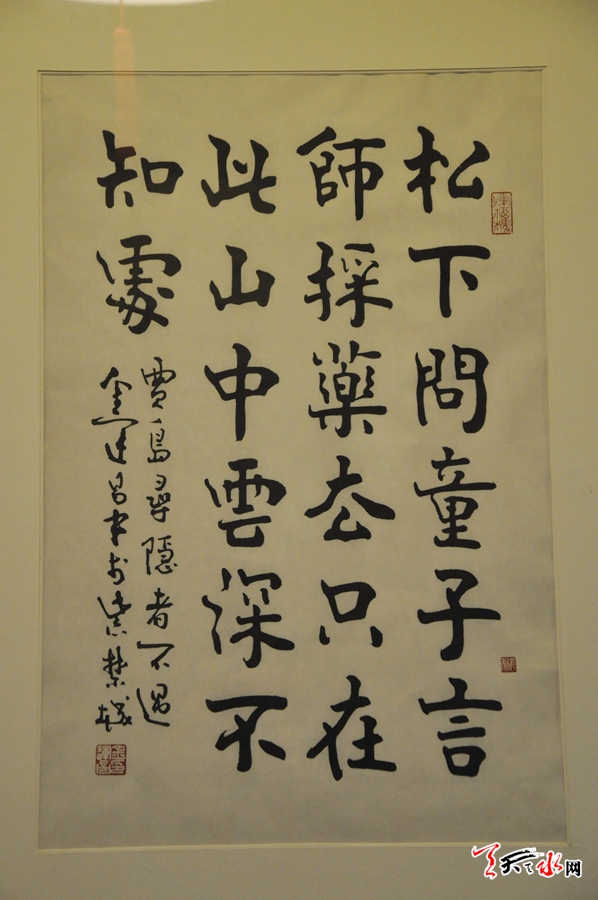 松下問童子言
師採藥去只在
此山中雲深不
知處
賈島尋隱者不遇
金運昌書於紫禁城
天天水网